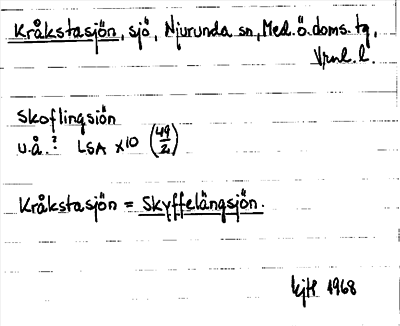 Kråkstasjön, sjö, Njurunda sn, Med. ö. doms. tg,
Vrnl. l.
Skoflingsiön
u.å.? LSA X10 (49/2)
Kråkstasjön = Skyffelängsjön.
1968